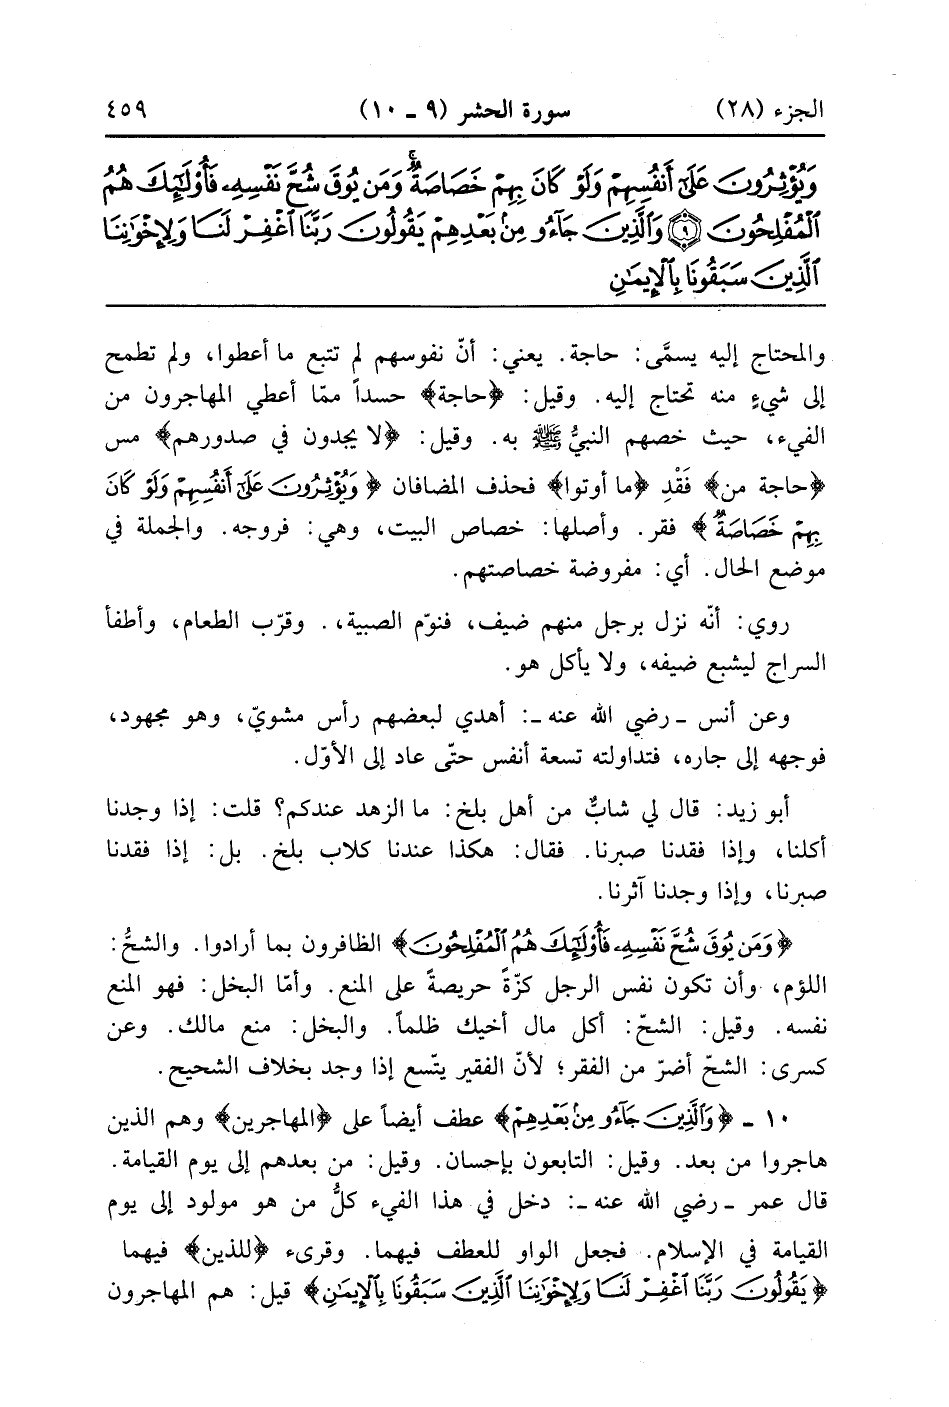 الجزء (٢٨) سورة الحشر (٩ - ١٠) ٤٥٩
وَيُؤْثِرُونَ عَلَىٰٓ أَنفُسِهِمْ وَلَوْ كَانَ بِهِمْ خَصَاصَةٌ ۚ وَمَن يُوقَ شُحَّ نَفْسِهِۦ فَأُو۟لَٰٓئِكَ هُمُ
ٱلْمُفْلِحُونَ ٩ وَٱلَّذِينَ جَآءُو مِنۢ بَعْدِهِمْ يَقُولُونَ رَبَّنَا ٱغْفِرْ لَنَا وَلِإِخْوَٰنِنَا
ٱلَّذِينَ سَبَقُونَا بِٱلْإِيمَٰنِ
والمحتاج إليه يسمَّى: حاجة. يعني: أنّ نفوسهم لم تتبع ما أعطوا، ولم تطمح
إلى شيءٍ منه تحتاج إليه. وقيل: ﴿حاجة﴾ حسداً ممّا أعطي المهاجرون من
الفيء، حيث خصهم النبيُّ ﷺ به. وقيل: ﴿لا يجدون في صدورهم﴾ مس
﴿حاجة من﴾ فَقْدِ ﴿ما أوتوا﴾ فحذف المضافان ﴿وَيُؤْثِرُونَ عَلَىٰٓ أَنفُسِهِمْ وَلَوْ كَانَ
بِهِمْ خَصَاصَةٌ﴾ فقر. وأصلها: خصاص البيت، وهي: فروجه. والجملة في
موضع الحال. أي: مفروضة خصاصتهم.
روي: أنّه نزل برجل منهم ضيف، فنوّم الصبية،. وقرّب الطعام، وأطفأ
السراج ليشبع ضيفه، ولا يأكل هو.
وعن أنس - رضي الله عنه -: أهدي لبعضهم رأس مشويّ، وهو مجهود،
فوجهه إلى جاره، فتداولته تسعة أنفس حتّى عاد إلى الأوّل.
أبو زيد: قال لي شابٌّ من أهل بلخ: ما الزهد عندكم؟ قلت: إذا وجدنا
أكلنا، وإذا فقدنا صبرنا. فقال: هكذا عندنا كلاب بلخ. بل: إذا فقدنا
صبرنا، وإذا وجدنا آثرنا.
﴿وَمَن يُوقَ شُحَّ نَفْسِهِۦ فَأُو۟لَٰٓئِكَ هُمُ ٱلْمُفْلِحُونَ﴾ الظافرون بما أرادوا. والشحُّ:
اللؤم، وأن تكون نفس الرجل كزّةً حريصةً على المنع. وأمّا البخل: فهو المنع
نفسه. وقيل: الشحّ: أكل مال أخيك ظلماً. والبخل: منع مالك. وعن
كسرى: الشحّ أضرّ من الفقر؛ لأنّ الفقير يتّسع إذا وجد بخلاف الشحيح.
١٠ - ﴿وَٱلَّذِينَ جَآءُو مِنۢ بَعْدِهِمْ﴾ عطف أيضاً على ﴿المهاجرين﴾ وهم الذين
هاجروا من بعد. وقيل: التابعون بإحسان. وقيل: من بعدهم إلى يوم القيامة.
قال عمر - رضي الله عنه -: دخل في هذا الفيء كلُّ من هو مولود إلى يوم
القيامة في الإسلام. فجعل الواو للعطف فيهما. وقرىء ﴿للذين﴾ فيهما
﴿يَقُولُونَ رَبَّنَا ٱغْفِرْ لَنَا وَلِإِخْوَٰنِنَا ٱلَّذِينَ سَبَقُونَا بِٱلْإِيمَٰنِ﴾ قيل: هم المهاجرون